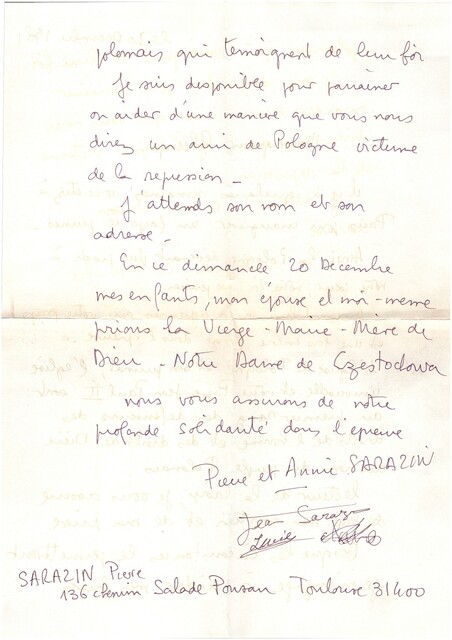 polonais qui témoignent de leur foi
Je suis disponible pour parrainer
ou aider d'une manière que vous nous
direz un ami de Pologne victime
de la repression -
J'attends son nom et son
adresse -
En ce dimanche 20 Décembre
mes enfants, mon épouse et moi-même
prions la Vierge - Marie - Mère de
Dieu - Notre Dame de Częstochowa
nous vous assurons de notre
profonde solidarité dans l'épreuve
Pierre et Annie SARAZIN
Jean Sarazin
Lucie
SARAZIN Pierre
136 chemin Salade Ponsan Toulouse 31400